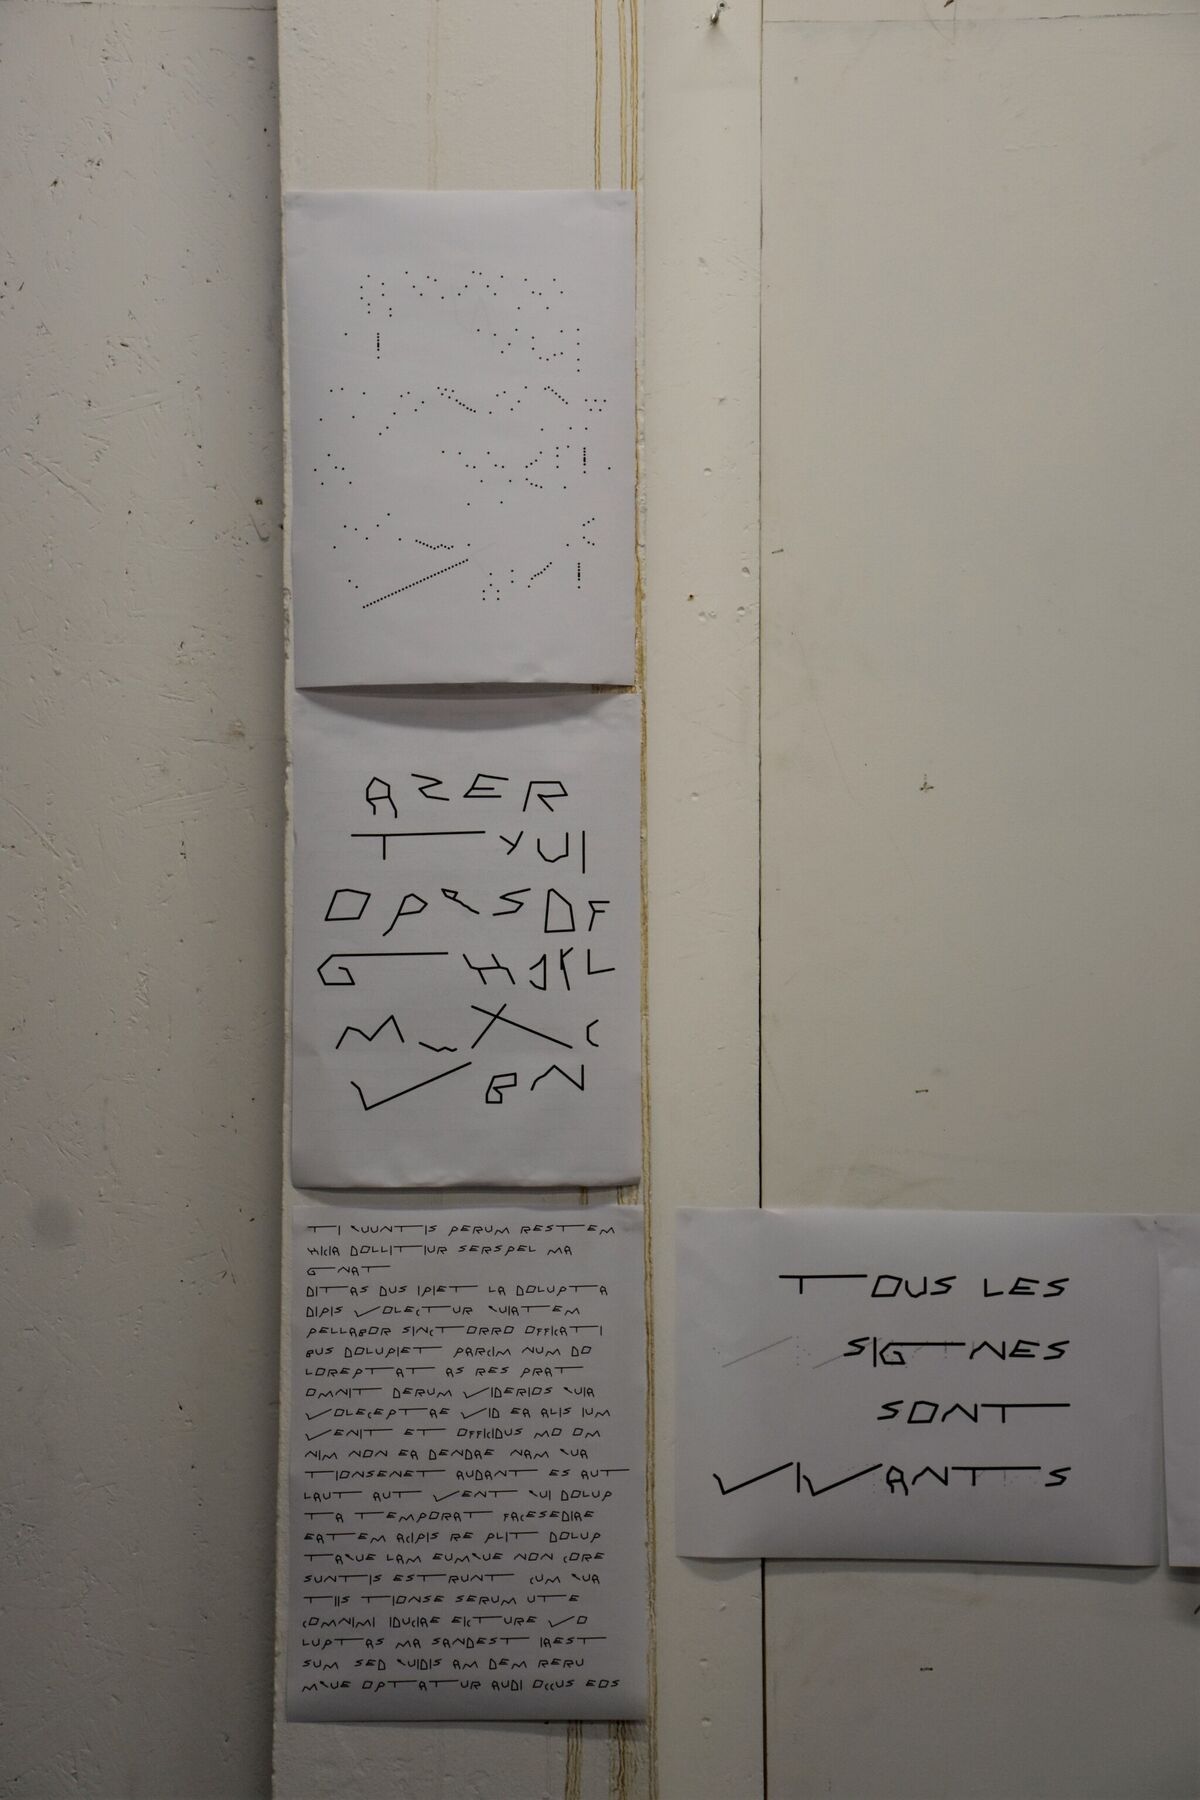 AZER
T YUI
OPQSDF
G HJKL
MWXC
VBN
TI QUUNTIS PERUM RESTEM
HICIA DOLLITIUR SERSPEL MA
GNAT
DITAS DUS IPIET LA DOLUPTA
DIPIS VOLECTUR QUIATEM
PELLABOR SINCTORRO OFFICATI
BUS DOLUPIET PARCIM NUM DO
LOREPTAT AS RES PRAT
OMNIT DERUM VIDERIOS QUIA
VOLECEPTAE VID EA ALIS IUM
VENIT ET OFFICIDUS MO OM
NIM NON EA DENDAE NAM QUA
TIONSENET AUDANT ES AUT
LAUT AUT VENT QUI DOLUP
TA TEMPORAT FACESEDIAE
EATEM ACIPIS RE PLIT DOLUP
TAQUE LAM EUMQUE NON CORE
SUNTIS ESTRUNT CUM QUA
TIIS TIONSE SERUM UTE
COMNIMI IDUCIAE EICTURE VO
LUPTAS MA SANDEST IAEST
SUM SED QUIDIS AM DEM RERU
MQUE OPTATUR AUDI OCCUS EOS
TOUS LES
SIGNES
SONT
VIVANTS